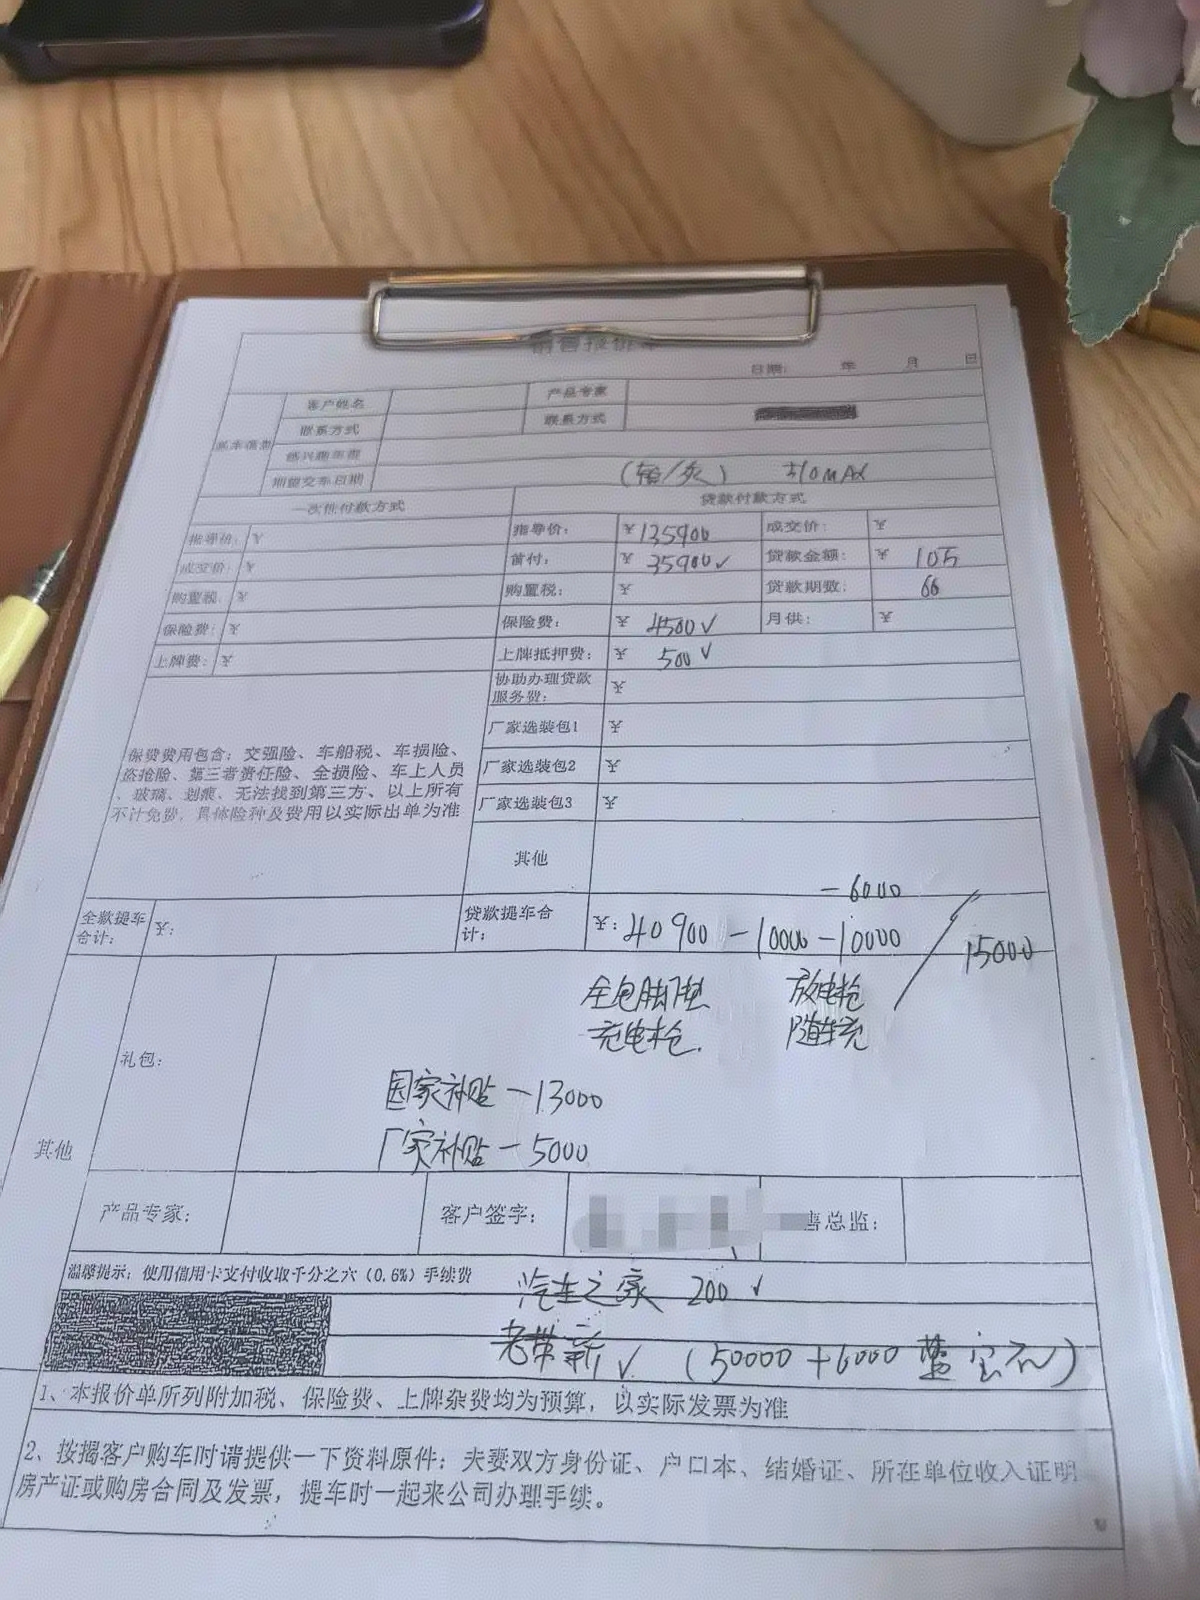 销售报价单
日期: 年 月 日
客户姓名 产品专家
联系方式 联系方式
期望交车日期
(  /灰) 510MAX
一次性付款方式 贷款付款方式
指导价: ¥ 指导价: ¥135900 成交价: ¥
成交价: ¥ 首付: ¥ 35900✓ 贷款金额: ¥ 105
购置税: ¥ 购置税: ¥ 贷款期数: 60
保险费: ¥ 保险费: ¥ 4500✓ 月供: ¥
上牌费: ¥ 上牌抵押费: ¥ 500✓
协助办理贷款
服务费: ¥
厂家选装包1 ¥
厂家选装包2 ¥
厂家选装包3 ¥
保费费用包含: 交强险、车船税、车损险、
盗抢险、第三者责任险、全损险、车上人员
、玻璃、划痕、无法找到第三方、以上所有
不计免费, 具体险种及费用以实际出单为准
其他
-6000
全款提车
合计: ¥:
贷款提车合
计: ¥: 40900 -10000 -10000 / 15000
全包脚垫 放电枪
充电枪. 随车充
礼包:
国家补贴 -13000
厂家补贴 -5000
其他
产品专家: 客户签字: 售总监:
温馨提示: 使用信用卡支付收取千分之六 (0.6%) 手续费
汽车之家 200 ✓
老带新 ✓ (50000 +6000 蓝宝石)
1、本报价单所列附加税、保险费、上牌杂费均为预算, 以实际发票为准
2、按揭客户购车时请提供一下资料原件: 夫妻双方身份证、户口本、结婚证、所在单位收入证明
房产证或购房合同及发票, 提车时一起来公司办理手续。